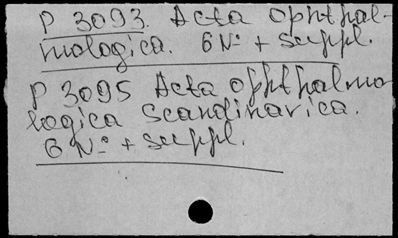 P 3093. Acta Ophthal-
mologica. 6 Nº + suppl.
P 3095 Acta Ophthalmo
logica Scandinavica.
6 Nº + suppl.